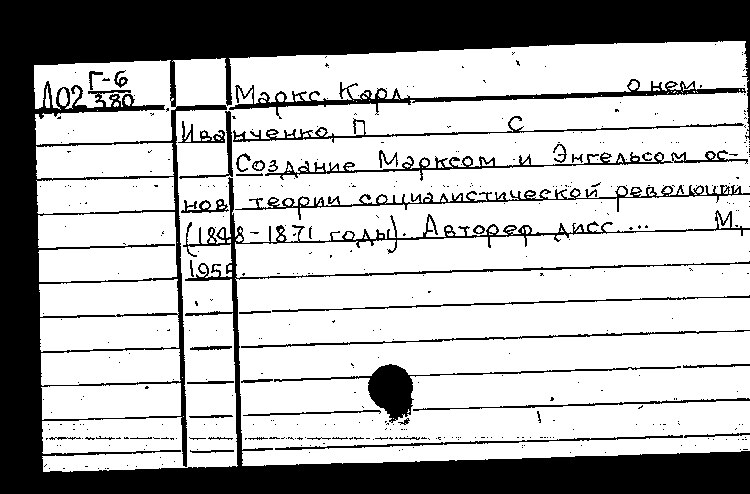 Д02 Г-6/380 Маркс, Карл, о нем.
Иванченко, П С
Создание Марксом и Энгельсом ос-
нов теории социалистической революции
(1848-1871 годы). Автореф. дисс... М.,
1955.